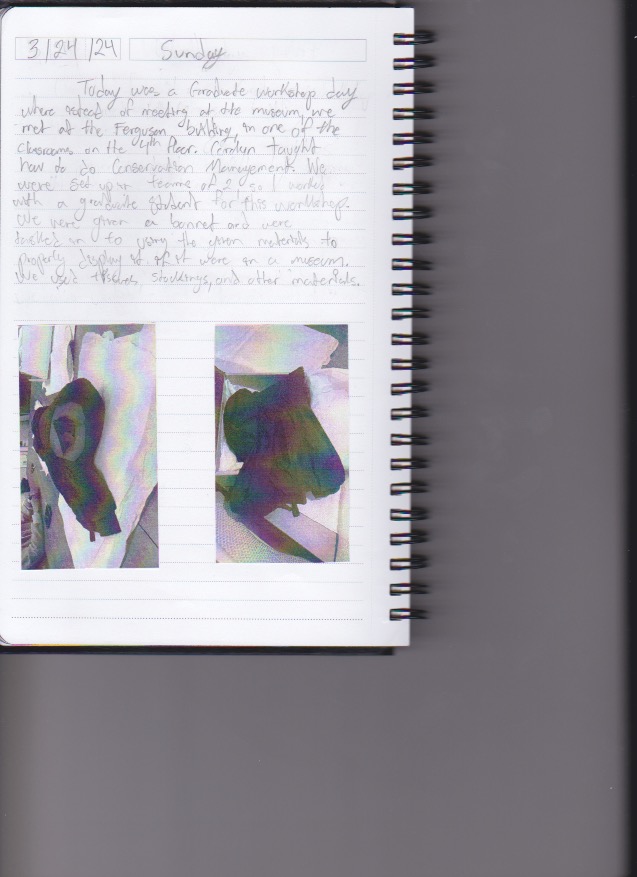 3/24/24 Sunday
Today was a Graduate workshop day
where instead of meeting at the museum, we
met at the Ferguson building, in one of the
classrooms on the 4th floor. Carolyn taught
how do do Conservation Management. We
were set up in teams of 2 so I worked
with a graduate student for this workshop.
We were given a bonnet and were
tasked in to using the given materials to
properly display it if it were in a museum.
We used tissues, stockings, and other materials.